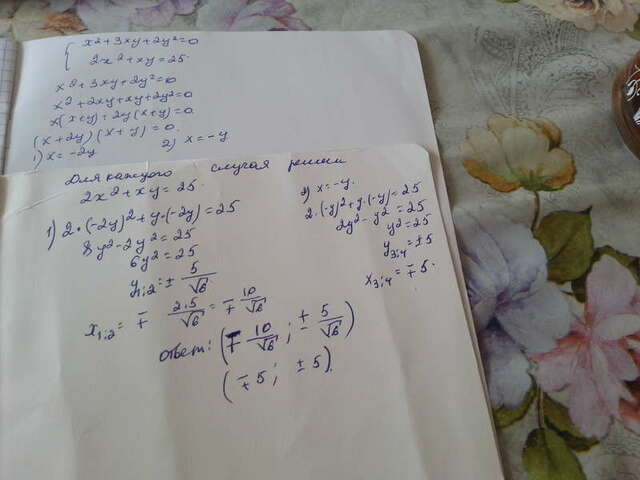 x²+3xy+2y²=0
2x²+xy=25.
x²+3xy+2y²=0
x²+2xy+xy+2y²=0
x(x+y)+2y(x+y)=0.
(x+2y)(x+y)=0.
1) x=-2y 2) x=-y
Для каждого случая решим
2x²+xy=25.
1) 2·(-2y)²+y·(-2y)=25
8y²-2y²=25
6y²=25
y₁;₂=± 5/√6
x₁;₂= ∓ 2·5/√6 = ∓ 10/√6
2) x=-y.
2·(-y)²+y·(-y)=25
2y²-y²=25
y²=25
y₃;₄=±5
x₃;₄=∓5.
ответ: (∓ 10/√6 ; ± 5/√6)
(∓5; ±5).